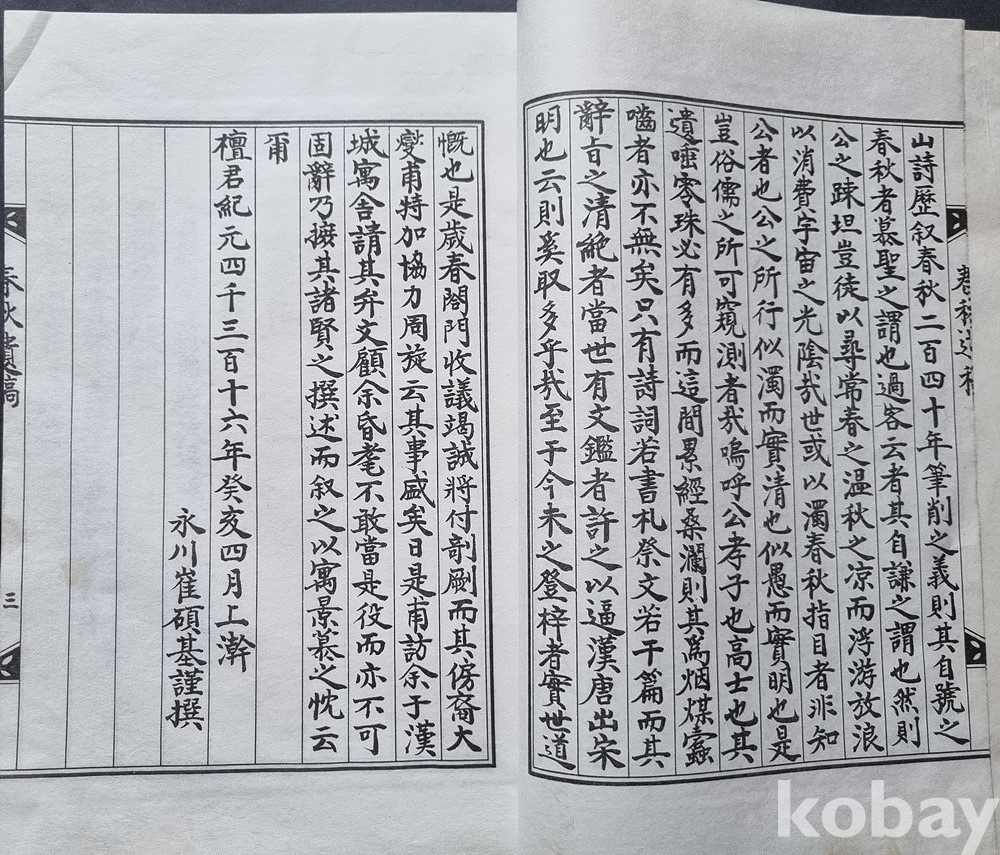 山詩歷叙春秋二百四十年筆削之義則其自號之
春秋者慕聖之謂也過客云者其自謙之謂也然則
公之踈坦豈徒以尋常春之温秋之凉而浮游放浪
以消費宇宙之光陰哉世或以濁春秋指目者非知
公者也公之所行似濁而實清也似愚而實明也是
豈俗儒之所可窺測者哉嗚呼公孝子也高士也其
遺唾零珠必有多而這間累經桑瀾則其爲烟煤蠹
嚙者亦不無矣只有詩詞若書札祭文若干篇而其
辭旨之清絶者當世有文鑑者許之以逼漢唐出宋
明也云則奚取多乎哉至于今未之登梓者實世道
慨也是歲春閤門收議竭誠將付剞劂而其傍裔大
燮甫特加協力周旋云其事盛矣日是甫訪余于漢
城寓舍請其弁文顧余昏耄不敢當是役而亦不可
固辭乃據其諸賢之撰述而叙之以寓景慕之忱云
甭
檀君紀元四千三百十六年癸亥四月上澣
永川崔碩基謹撰
春秋遺稿
三
春秋遺稿
kobay